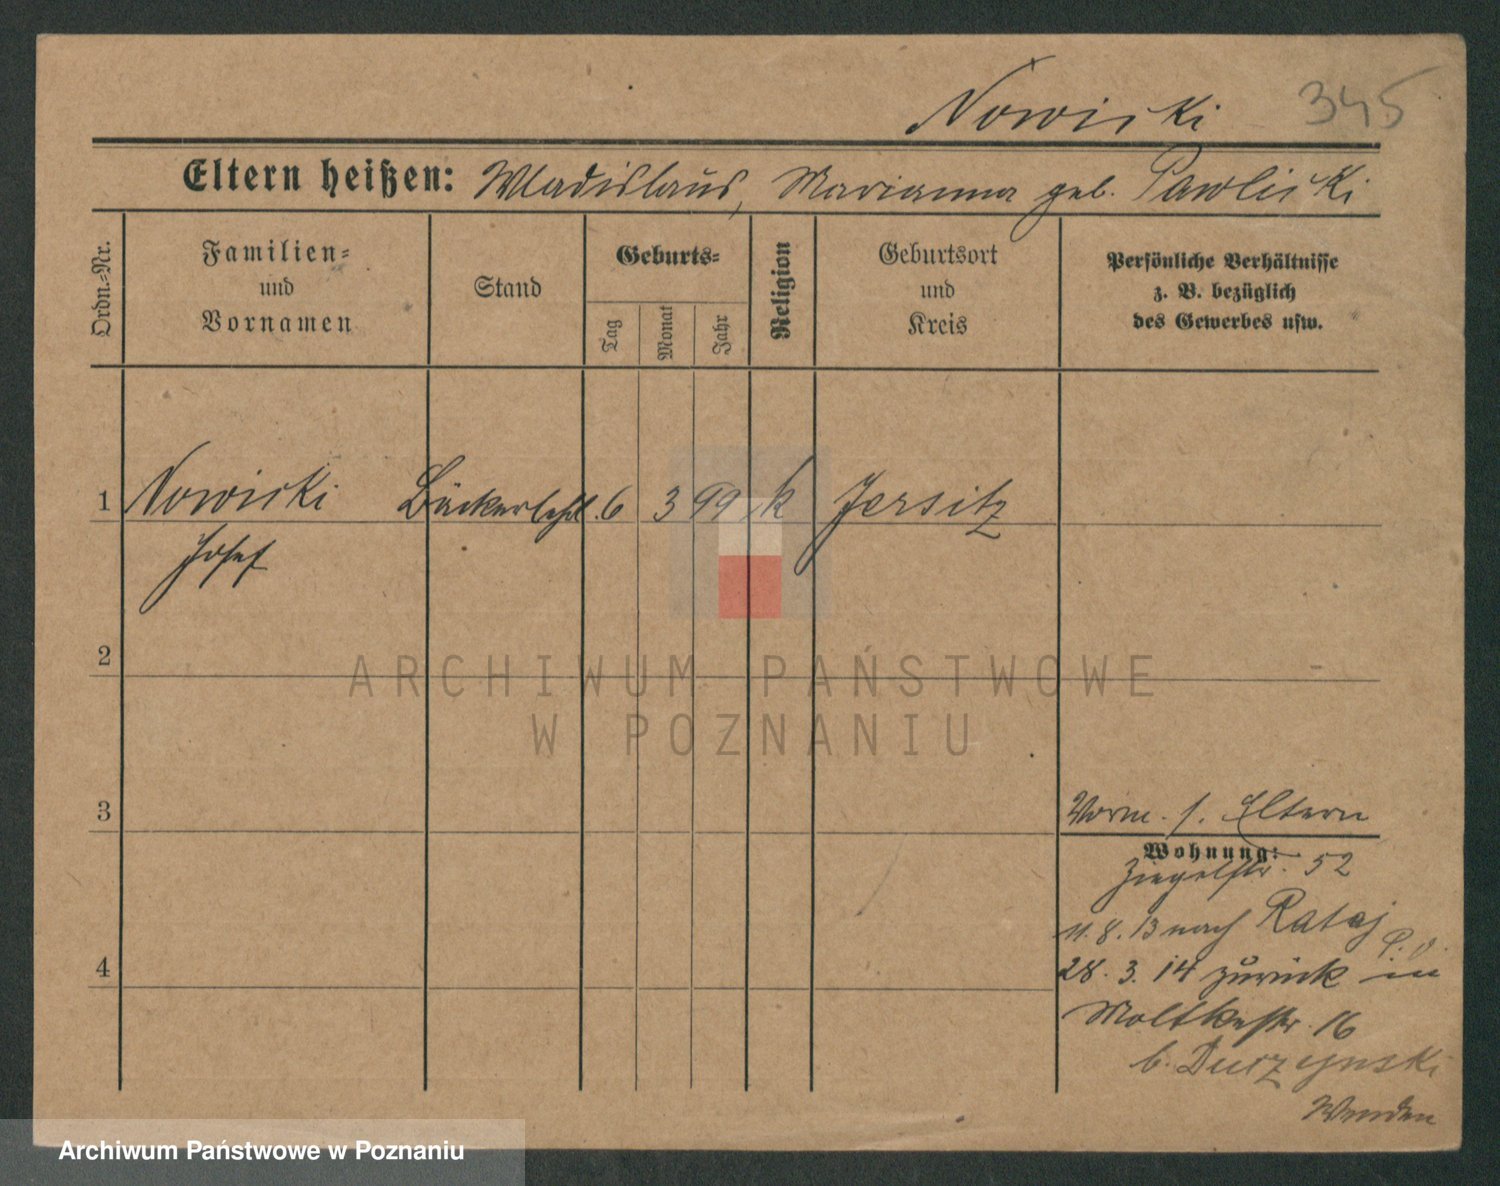 Nowicki 345
Eltern heißen: Wladislaus, Marianna geb. Pawlicki
Ordn.-Nr.
Familien-
und
Vornamen
Stand
Geburts-
Tag
Monat
Jahr
Religion
Geburtsort
und
Kreis
Persönliche Verhältnisse
z. B. bezüglich
des Gewerbes usw.
1 Nowicki Bäckerlehrl. 6 3 99 k Jersitz
Josef
2
ARCHIWUM PAŃSTWOWE
W POZNANIU
3
Vorm. s. Eltern
Wohnung:
Ziegelstr. 52
11. 8. 13 nach Rataj
4
28. 3. 14 zurück in
Moltkestr. 16
b. Durzynski
Wenden
Archiwum Państwowe w Poznaniu